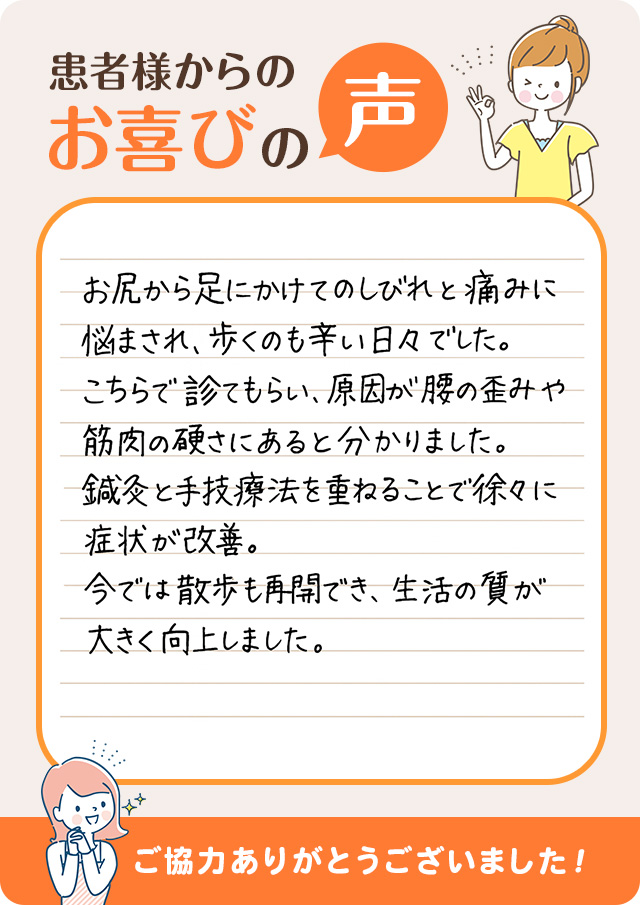 患者様からの
お喜びの声
お尻から足にかけてのしびれと痛みに
悩まされ、歩くのも辛い日々でした。
こちらで診てもらい、原因が腰の歪みや
筋肉の硬さにあると分かりました。
鍼灸と手技療法を重ねることで徐々に
症状が改善。
今では散歩も再開でき、生活の質が
大きく向上しました。
ご協力ありがとうございました！